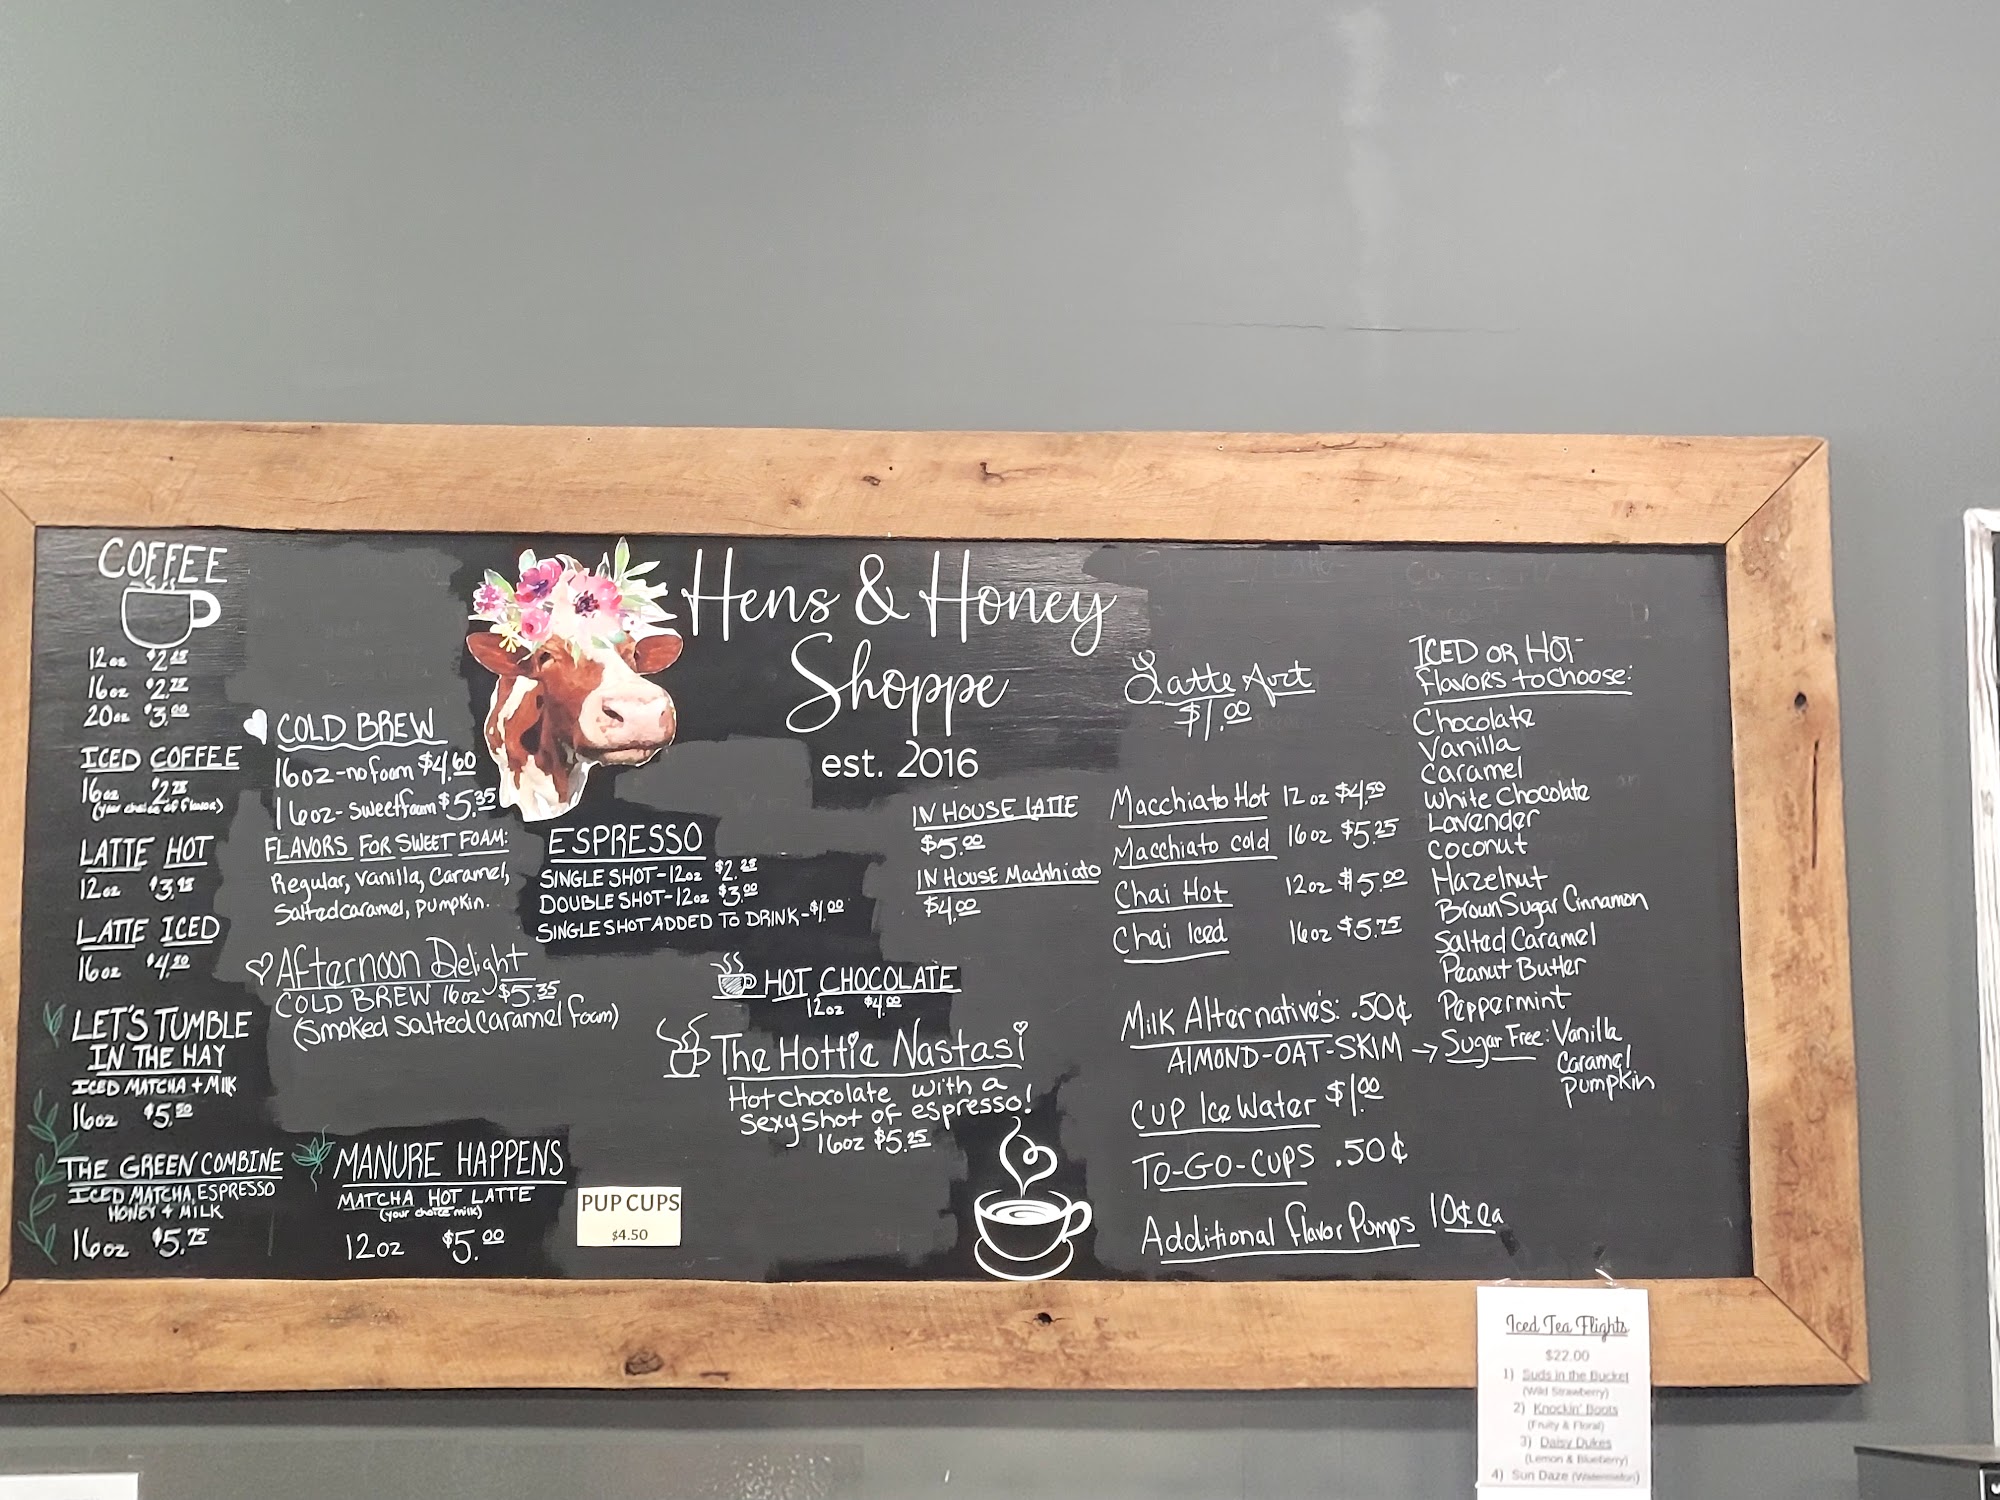 COFFEE
12oz $2.25
16oz $2.75
20oz $3.00
ICED COFFEE
16oz $2.75
(your choice of flavor)
LATTE HOT
12oz $3.95
LATTE ICED
16oz $4.50
LET'S TUMBLE
IN THE HAY
ICED MATCHA + MILK
16oz $5.50
THE GREEN COMBINE
ICED MATCHA, ESPRESSO
HONEY + MILK
16oz $5.75
COLD BREW
16oz-no foam $4.60
16oz-sweetfoam $5.35
FLAVORS FOR SWEET FOAM:
Regular, Vanilla, Caramel,
Salted caramel, Pumpkin.
Afternoon Delight
COLD BREW 16oz $5.35
(Smoked Salted Caramel foam)
MANURE HAPPENS
MATCHA HOT LATTE
(your choice milk)
12oz $5.00
Hens & Honey
Shoppe
est. 2016
ESPRESSO
SINGLE SHOT-12oz $2.25
DOUBLE SHOT-12oz $3.00
SINGLE SHOT ADDED TO DRINK-$1.00
IN HOUSE LATTE
$5.00
IN HOUSE Machhiato
$4.00
HOT CHOCOLATE
12oz $4.00
The Hottie Nastasi
Hot chocolate with a
sexy shot of espresso!
16oz $5.25
PUP CUPS
$4.50
Latte Art
$1.00
Macchiato Hot 12oz $4.50
Macchiato cold 16oz $5.25
Chai Hot 12oz $5.00
Chai Iced 16oz $5.75
Milk Alternative's: .50¢
AlMOND-OAT-SKIM
CUP Ice Water $1.00
TO-GO-CUPS .50¢
Additional Flavor Pumps 10¢ ea
ICED OR HOT
flavors to choose:
Chocolate
Vanilla
Caramel
White Chocolate
Lavender
Coconut
Hazelnut
Brown Sugar Cinnamon
Salted Caramel
Peanut Butter
Peppermint
→ Sugar Free: Vanilla
Caramel
Pumpkin
Iced Tea Flights
$22.00
1) Suds in the Bucket
(Wild Strawberry)
2) Knockin' Boots
(Fruity & Floral)
3) Daisy Dukes
(Lemon & Blueberry)
4) Sun Daze (Watermelon)